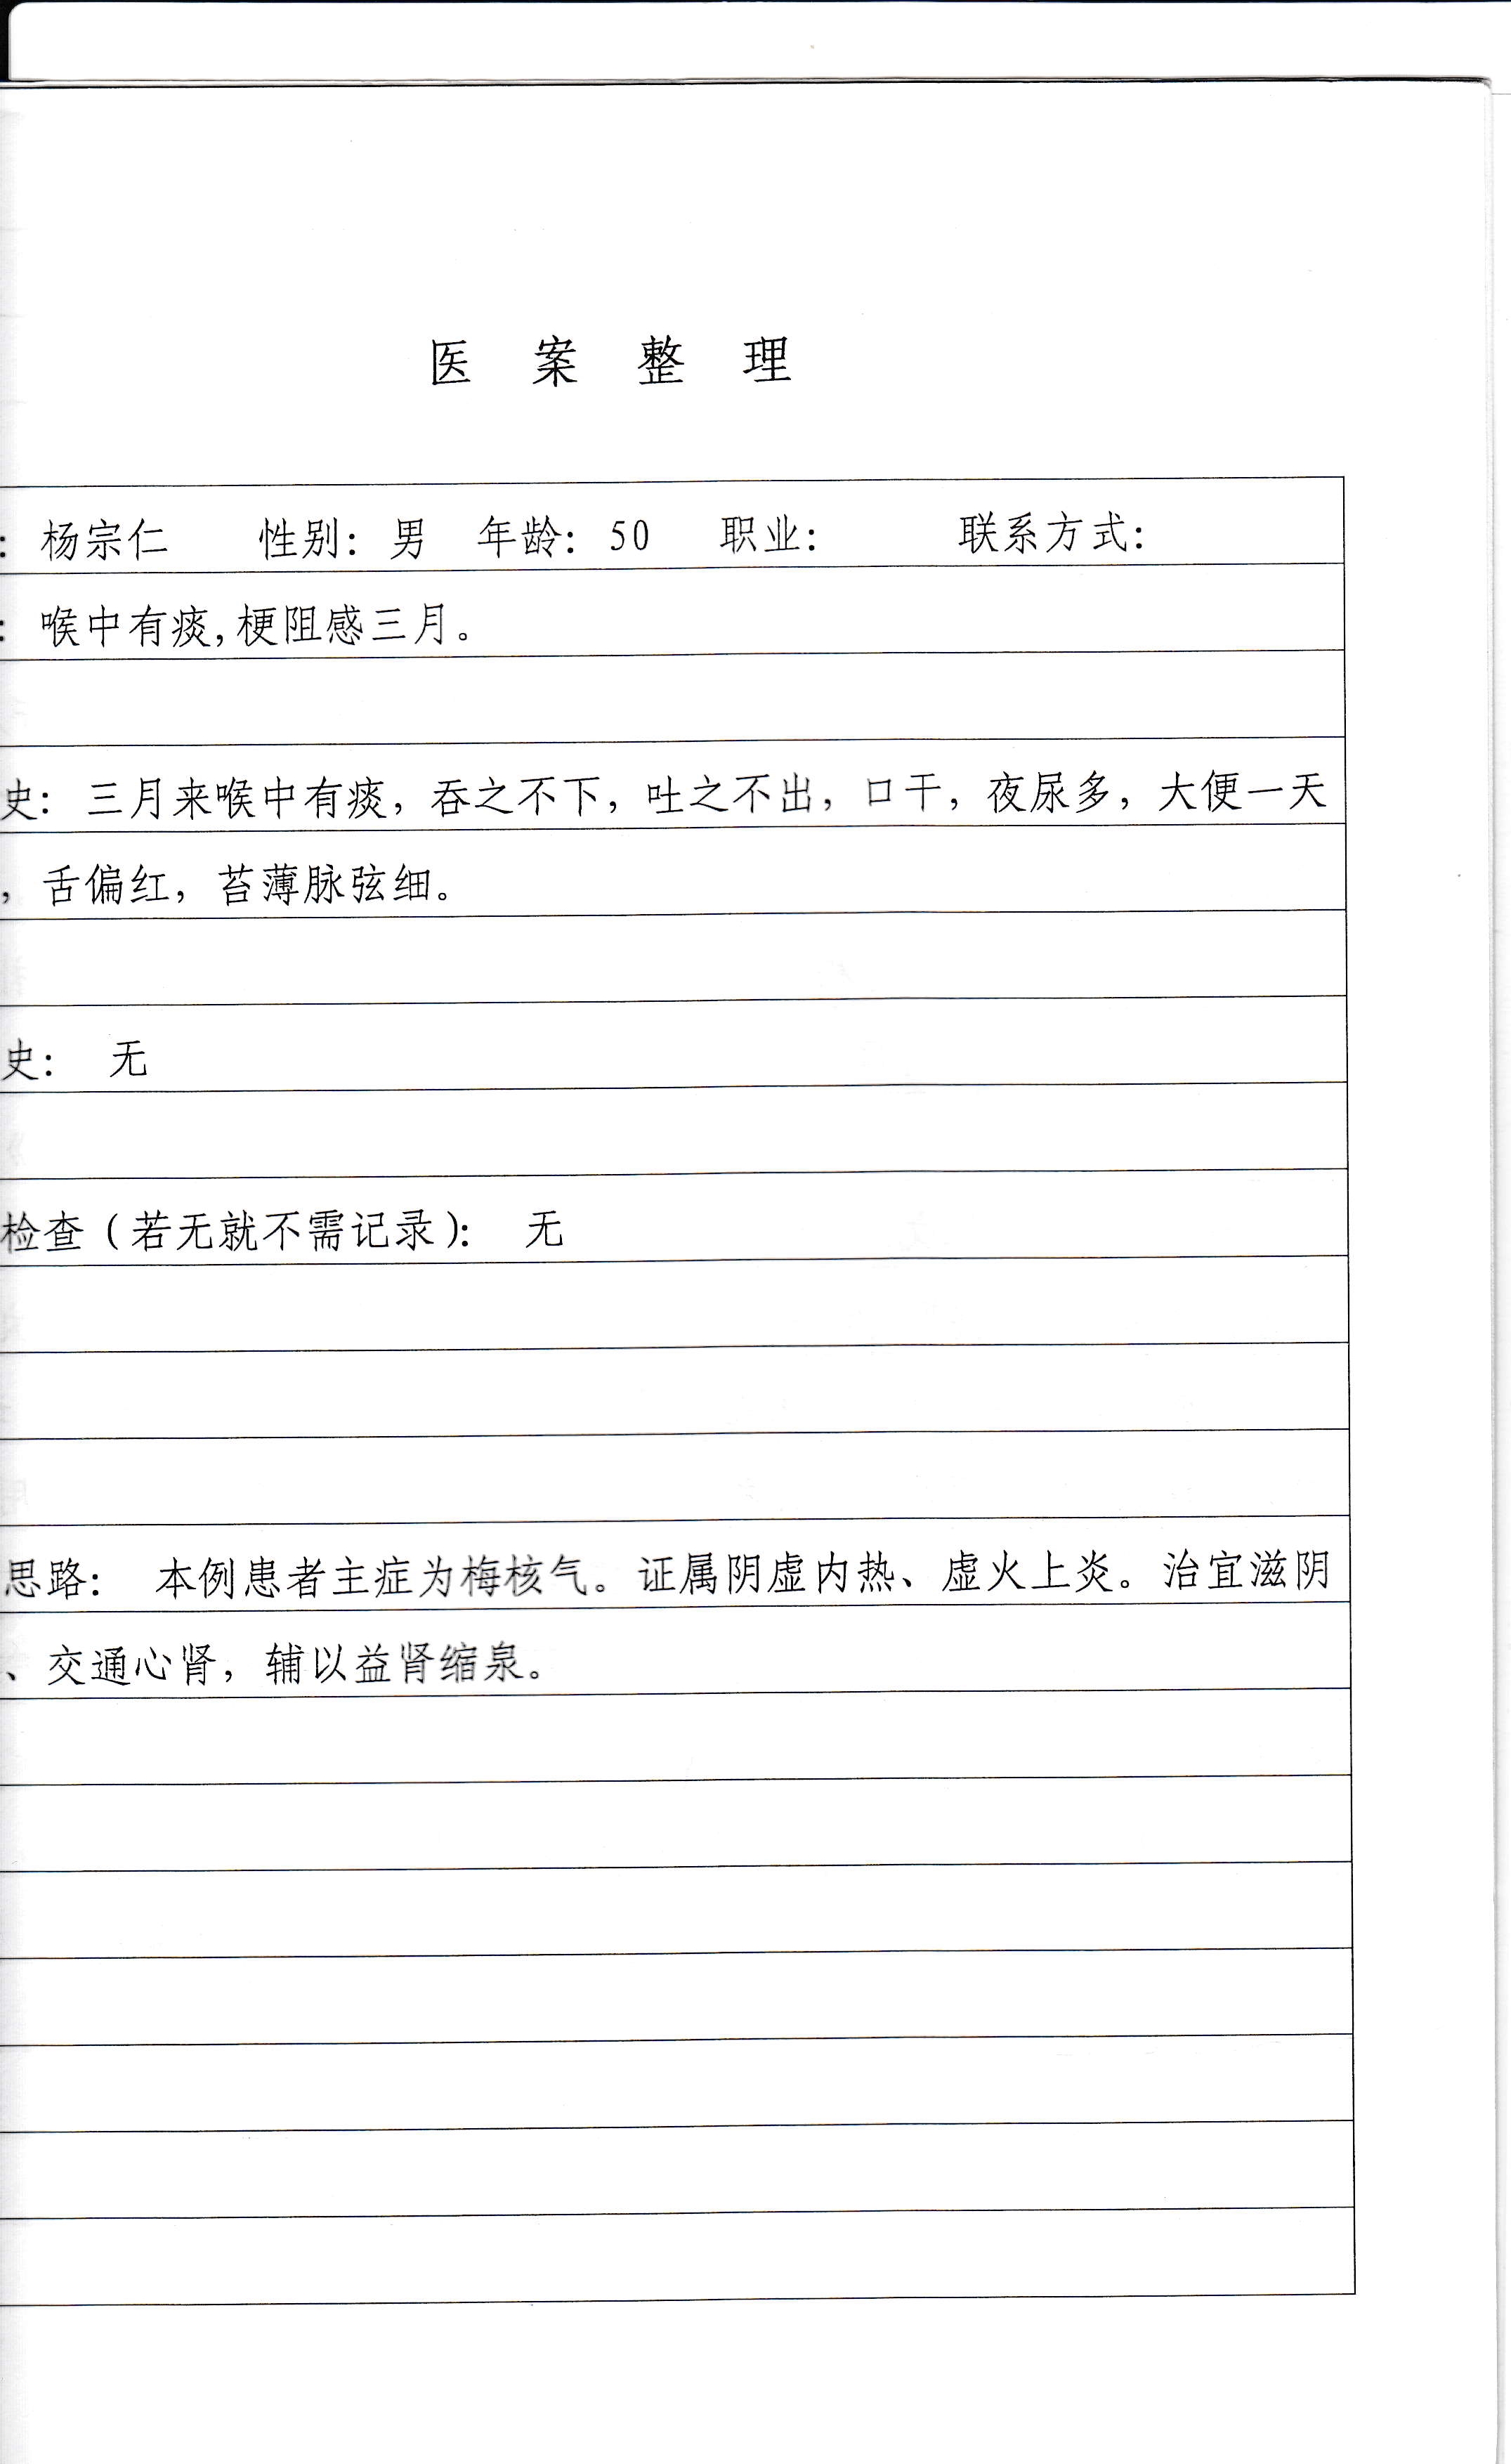 医案整理
：杨宗仁 性别：男 年龄：50 职业： 联系方式：
：喉中有痰,梗阻感三月。
史：三月来喉中有痰，吞之不下，吐之不出，口干，夜尿多，大便一天
，舌偏红，苔薄脉弦细。
史： 无
检查（若无就不需记录）： 无
思路： 本例患者主症为梅核气。证属阴虚内热、虚火上炎。治宜滋阴
、交通心肾，辅以益肾缩泉。